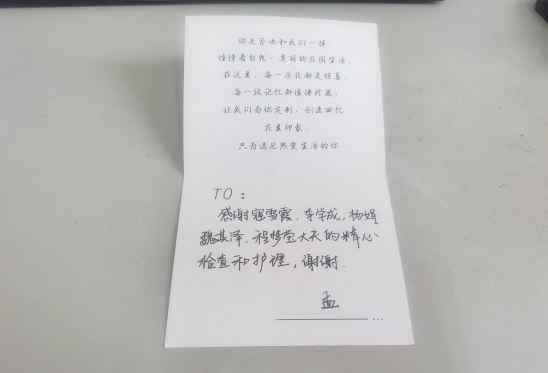 你是否也和我们一样,
憧憬着自然、美丽的花园生活,
在这里,每一朵花都是惊喜,
每一段记忆都值得珍藏,
让我们为你定制、创造回忆,
花里印象,
只为遇见热爱生活的你
TO:
感谢寇雪霞,李学成,杨娟
魏其泽,程梦莹大夫的精心
检查和护理,谢谢.
孟
...